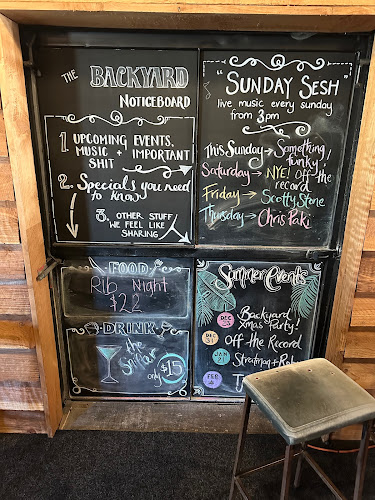 THE BACKYARD
NOTICEBOARD
1. UPCOMING EVENTS,
MUSIC + IMPORTANT
SHIT
2. Specials you need
to know
3. OTHER STUFF
WE FEEL LIKE
SHARING
"SUNDAY SESH"
live music every sunday
from 3pm
This Sunday → Something
funky!
Saturday → NYE! Off the
record
Friday → Scotty Stone
Thursday → Chris Paki
FOOD
Rib Night
$22
DRINK
the
only $15
Summer Events
DEC
Backyard
Xmas Party!
DEC 31
Off the Record
JAN 21
FEB